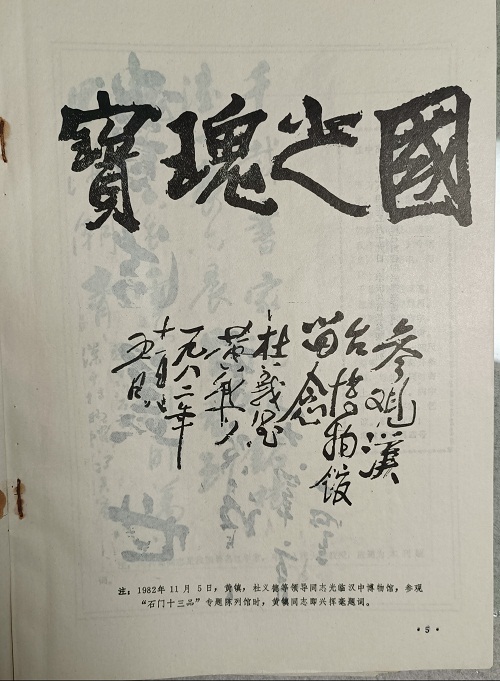 國之瑰寶
参观漢
台博物馆
留念
杜義德
黄镇
一九八二年
十一月
五日
注：1982年11月5日，黄镇，杜义德等领导同志光临汉中博物馆，参观
“石门十三品”专题陈列馆时，黄镇同志即兴挥毫题词。
·5·